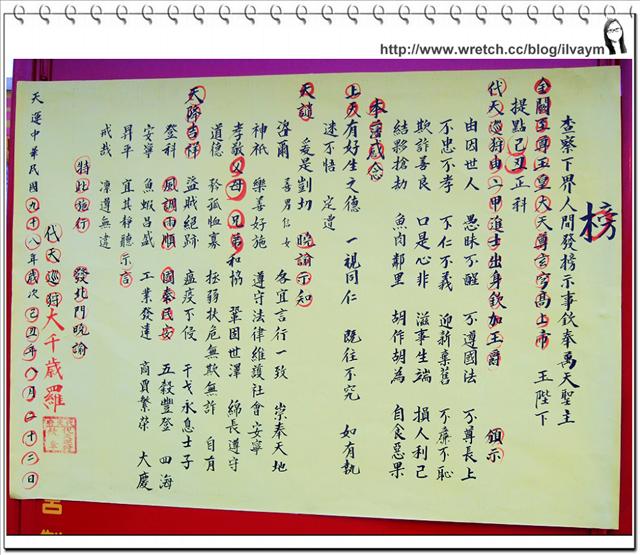 http://www.wretch.cc/blog/ilvaym
榜
查察下界人間發榜示事欽奉萬天聖主
金闕至尊玉皇大天尊玄穹高上帝　玉陛下
提點己丑正科
代天巡狩由二甲進士出身欽加王爵　領示
由因世人　愚昧不醒　不遵國法　不尊長上
不忠不孝　不仁不義　迎新棄舊　不廉不恥
欺詐善良　口是心非　滋事生端　損人利己
結夥搶劫　魚肉鄰里　胡作胡為　自食惡果
本爵感念
上天有好生之德　一視同仁　既往不究　如有執
迷不悟　定遭
天譴　爰是剴切　曉諭示知
洛爾　善男信女　各宜言行一致　崇奉天地
神祇　樂善好施　遵守法律維護社會安寧
孝敬父母　兄弟和協　鞏固世澤　綿長遵守
道德　矜孤恤寡　拯弱扶危無欺無詐　自有
天降吉祥　盜賊絕跡　瘟疫不侵　干戈永息士子
登科　風調雨順　國泰民安　五穀豐登　四海
安寧　魚蝦呂盛　工業發達　商賈繁榮　大慶
昇平　宜其靜聽示言
戒哉　凜遵無違
特此施行　發北門曉諭
代天巡狩大千歲羅
天運中華民國九十八年歲次己丑年八月二十三日